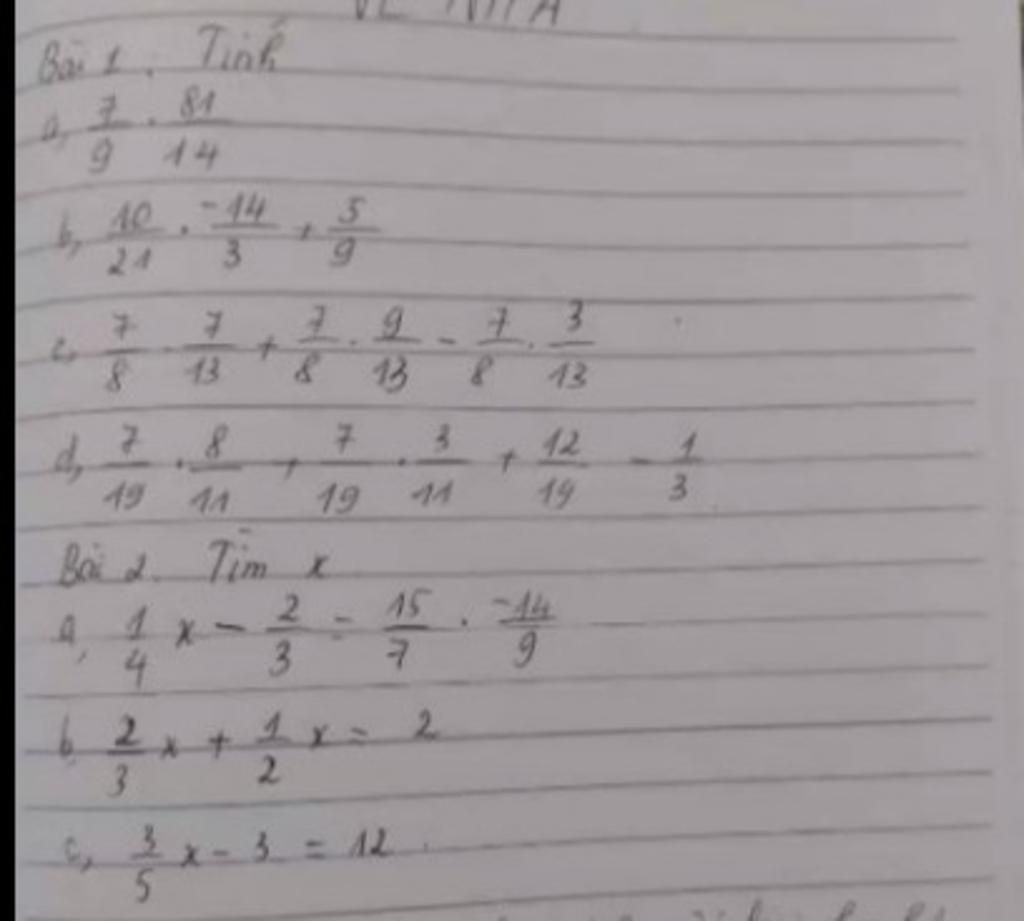 Bài 1. Tính
a, 7/9 . 81/14
b, 10/21 . -14/3 + 5/9
c, 7/8 . 7/13 + 7/8 . 9/13 - 7/8 . 3/13
d, 7/19 . 8/11 + 7/19 . 3/11 + 12/19 - 1/3
Bài 2. Tìm x
a, 1/4 x - 2/3 = 15/7 . -14/9
b, 2/3 x + 1/2 x = 2
c, 3/5 x - 3 = 12